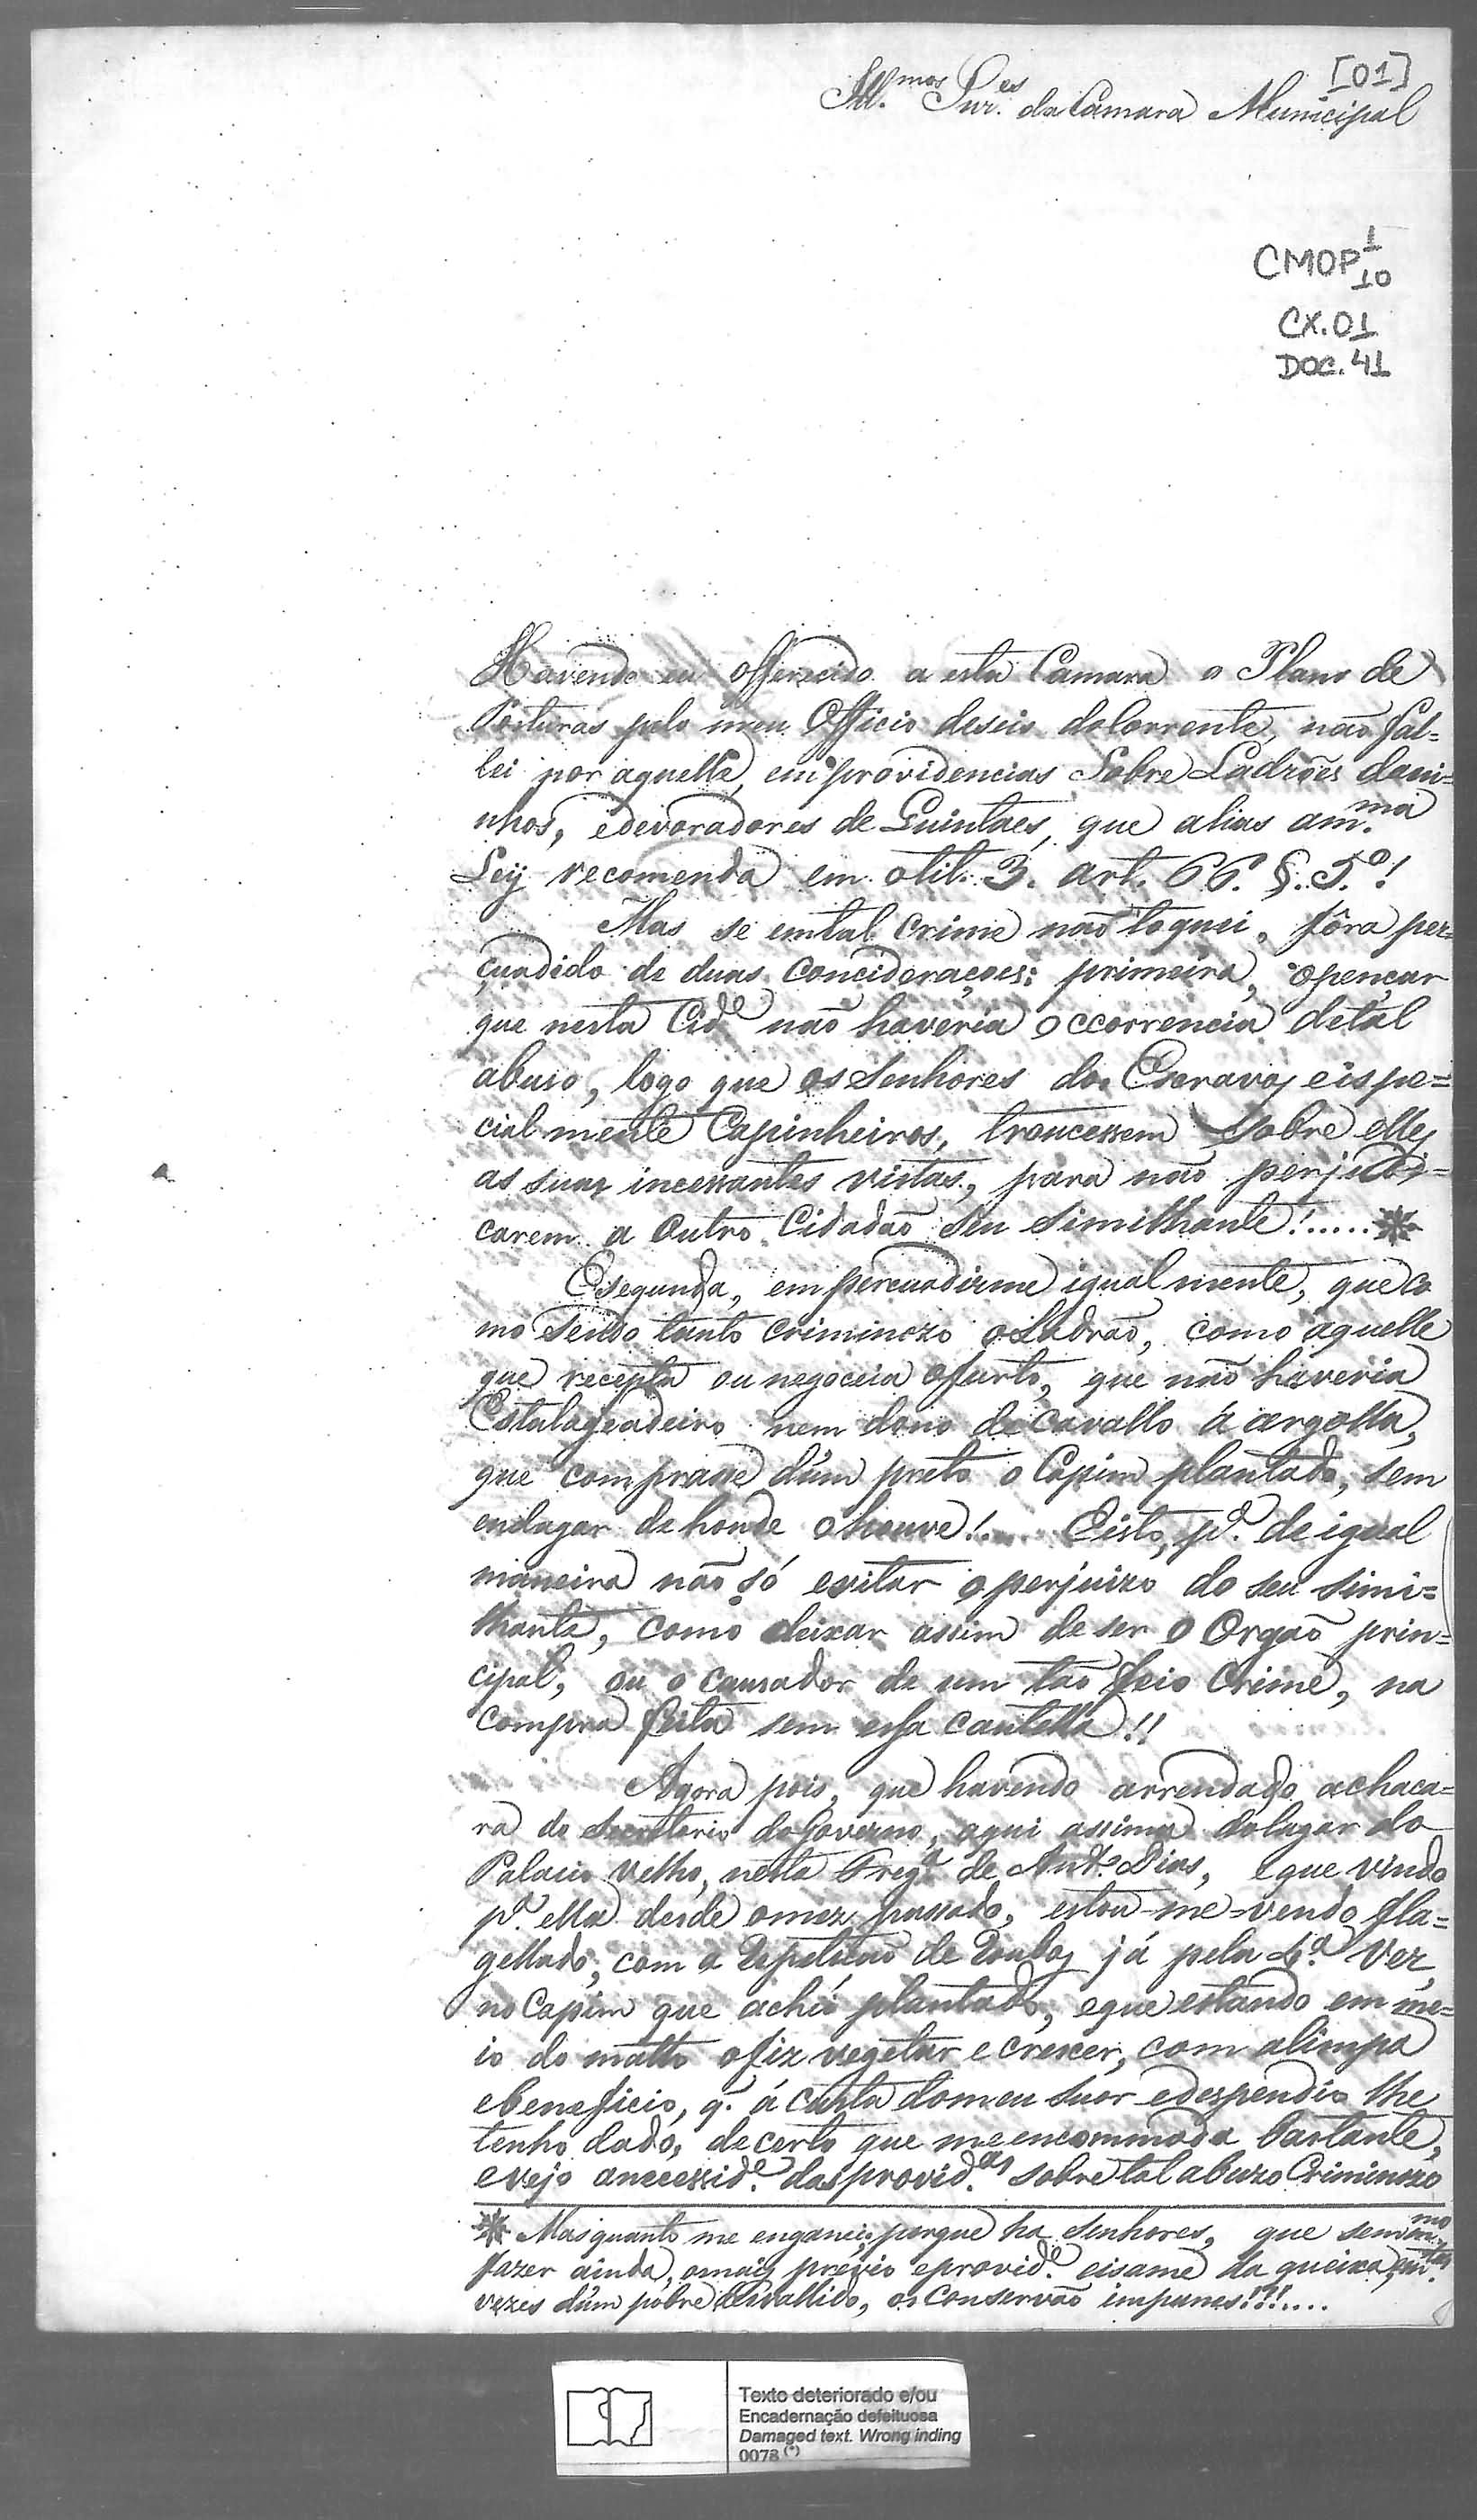 [01]
Ill.mos Snr.es da Camara Municipal
CMOP 1/10
CX.01
DOC.41
Havendo eu offerecido a esta Camara o Plano de
Posturas pelo meu Officio deseis do Corrente, não fal=
lei por aquella, em providencias Sobre Ladrões dani=
nhos, edevoradores de Quintaes, que alias am.ma
Ley recomenda em otit. 3. art. 66. §. 5.º!
Mas se emtal crime não toquei, fôra per=
çuadido de duas Conciderações: primeira, opençar
que nesta Cid.e não haveria occorrencia detal
abuso, logo que os Senhores dos Escravos eispe=
cialmente Capinheiros, troucessem Sobre elles
as suas incessantes vistas, para não perjudi=
carem a Outro Cidadão seu Similhante!..... *
Esegunda, em percuadirme igualmente, queco
mo sendo tanto criminozo oLadrão, como aquelle
que recepta ou negoceia ofurto, que não haveria
Estalageadeiro nem dono de Cavallo á argolla,
que comprasse d'um preto o Capim plantado, sem
endagar de honde ohouve!.... Eisto, p.a de igual
maneira não só evitar o perjuizo do seu simi=
lhante, como deixar assim de ser o Orgão prin=
cipal, ou o Causador de um tão feio Crime, na
Compra feita sem essa cautella!!
Agora pois, que havendo arrendado achaca=
ra do Secretario do Governo, aqui assima dolugar do
Palacio Velho, nesta Freg.a de Ant.o Dias, eque vindo
p.a ella desde omez passado, estou-me-vendo fla=
gellado, com a Repetição de Roubos já pela 4.a Vez,
no Capim que achei plantado, eque estando em me=
io do matto ofiz vegetar e crescer, com alimpa
ebeneficio, q. á custa domeu suor edespendio lhe
tenho dado, decerto que meencommoda bastante,
evejo anecessid.e dasprovid.as sobre tal abuzo Criminozo
* Mas quanto me enganei; porque ha Senhores, que sem m.mo
fazer ainda, omais prévio eprovid.e eisame da queixa, em m.tas
vezes d'um pobre desvallido, os Conservão impunes!?!....
Texto deteriorado e/ou
Encadernação defeituosa
Damaged text. Wrong inding
0078 (*)